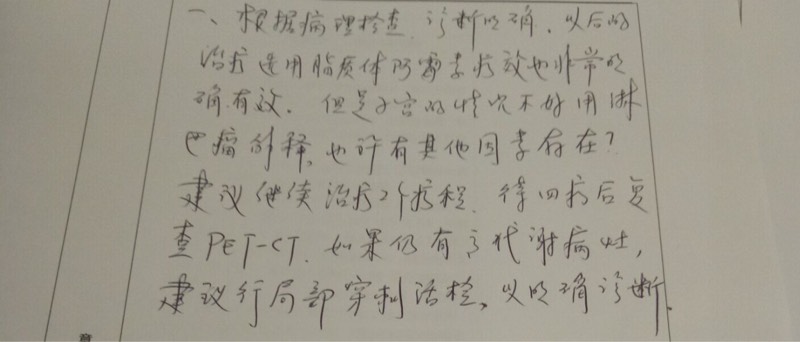 一、根据病理检查,诊断明确,以后的
治疗运用脂质体阿霉素疗效也非常明
确有效。但是子宫的情况不好用淋
巴瘤解释,也许有其他因素存在?
建议继续治疗2个疗程,待四疗后复
查PET-CT.如果仍有高代谢病灶,
建议行局部穿刺活检,以明确诊断.
意